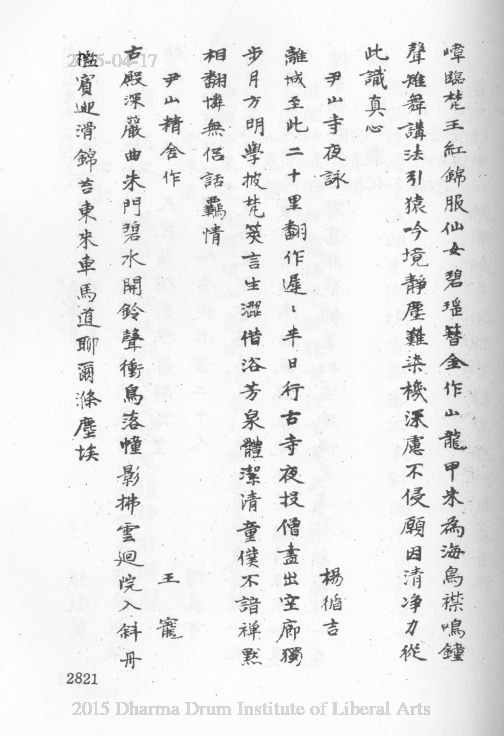 嶂臨梵王紅錦服仙女碧瑤簪金作山龍甲朱為海鳥襟鳴鐘
聲雜舞講法引猿吟境靜塵難染機深慮不侵願因清净力從
此識真心
尹山寺夜詠 楊循吉
離城至此二十里翻作遲遲半日行古寺夜投僧盡出空廊獨
步月方明學披梵筴言生澀借浴芳泉體潔清童僕不諳禪默
相翻憐無侶話羈情
尹山精舍作 王寵
古殿深嚴曲朱門碧水開鈴聲衝鳥落幢影拂雲迴院入斜丹
檻賓迎滑錦苔東来車馬道聊爾滌塵埃
2821
2015-04-17
2015 Dharma Drum Institute of Liberal Arts